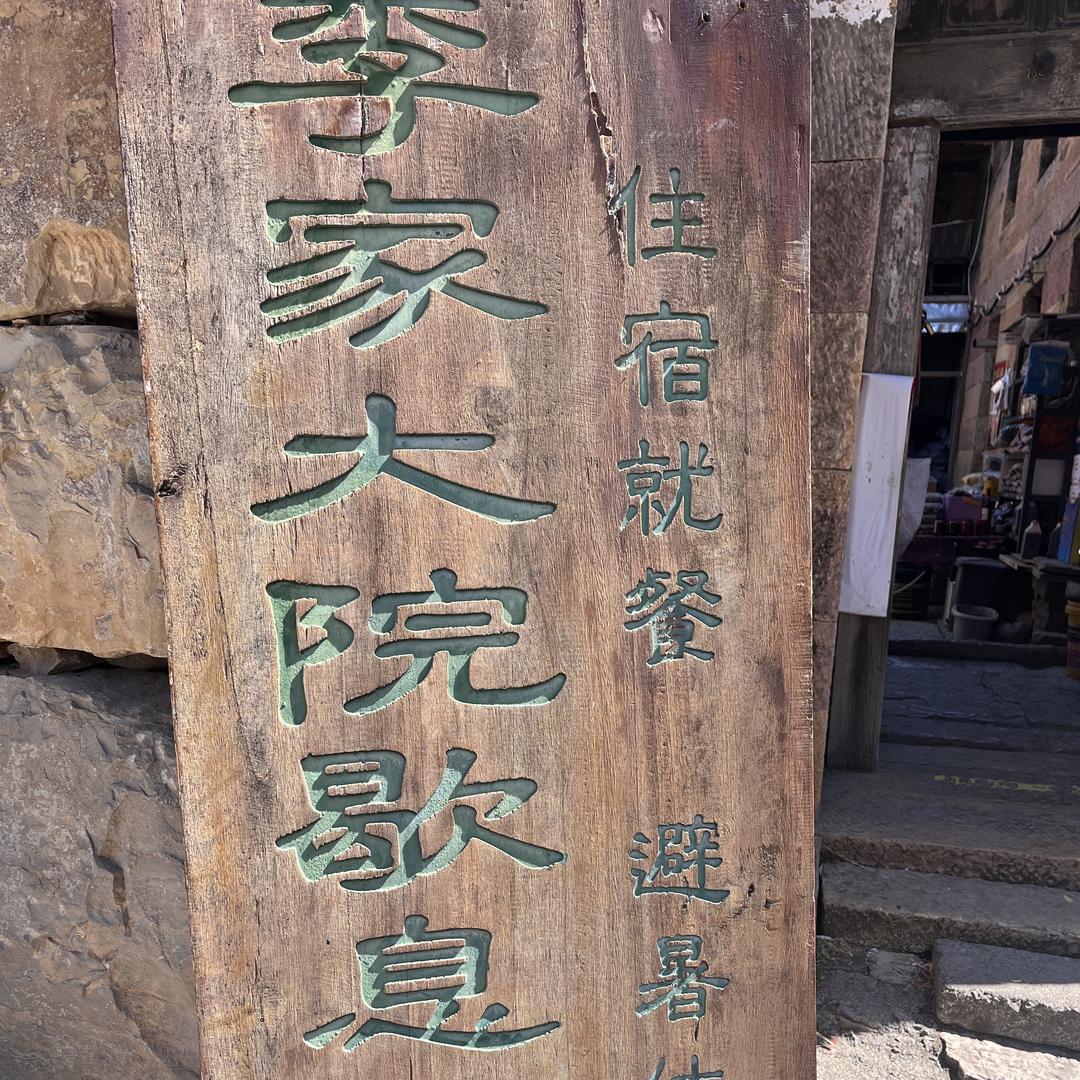 住宿就餐 避暑
家大院歇息